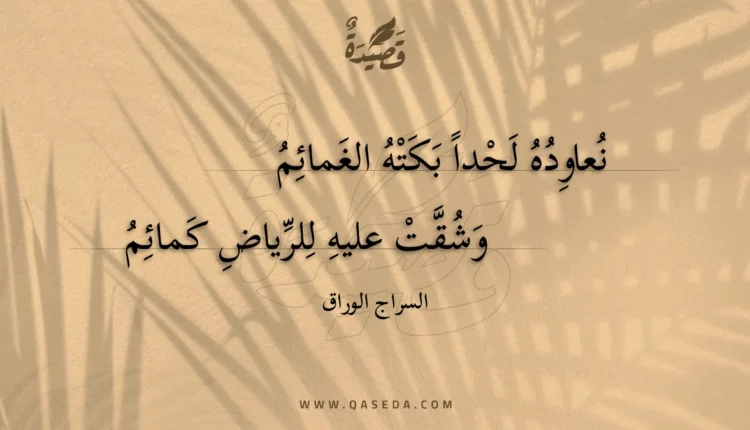 قَصِيْدَةٌ
نُعاوِدُهُ لَحْداً بَكَتْهُ الغَمائِمُ
وَشُقَّتْ عليهِ لِلرِّياضِ كَمائِمُ
السراج الوراق
WWW.QASEDA.COM